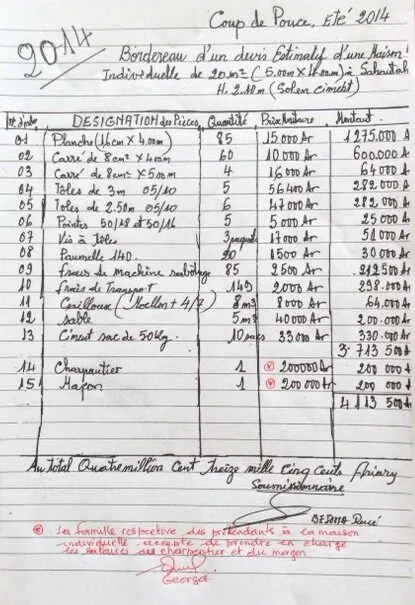 Coup de Pouce. Eté 2014
2014
Bordereau d'un devis Estimatif d'une Maison
Individuelle de 20m² (5.00m X 4.00m) à Sahoutah
H. 2.10m (Solen ciment)
N° d'ordre DESIGNATION des Pièces Quantité Prix Unitaire Montant
01 Planche (16cm X 4.00m) 85 15.000 Ar 1 275.000 A
02 Carré de 8cm² X 4.00m 60 10.000 Ar 600.000 A
03 Carré de 8cm² X 5.00m 4 16000 Ar 64000 A
04 Tôles de 3m 05/10 5 56400 Ar 282 000 A
05 Tôles de 2.50m 05/10 6 47000 Ar 282 000 A
06 Pointes 50/18 et 50/16 5 5000 Ar 25 000 A
07 Vis à Tôle 3 paquets 17000 Ar 51 000 A
08 Paumelle 140. 20 1500 Ar 30 000 A
09 frais de Machine 85 2500 Ar 212500 A
10 frais de Transport 149 2000 Ar 298.000 A
11 Cailloux (Moellon + 4/7) 8 m³ 8000 Ar 64.000 A
12 Sable 5 m³ 40000 Ar 200.000 A
13 Ciment sac de 50Kg. 10 sacs 33000 Ar 330.000 Ar
3.713 500 A
14 Charpentier 1 * 200000 Ar 200 000 A
15 Maçon 1 * 200 000 Ar 200 000 A
4 113 500 A
Au total Quatre million Cent Treize mille Cinq Cents Ariary
Soumissionnaire
BESOMA René
* La famille respective des prétendants à la maison
individuelle accepte de prendre en charge
les salaires du charpentier et du maçon
Georges